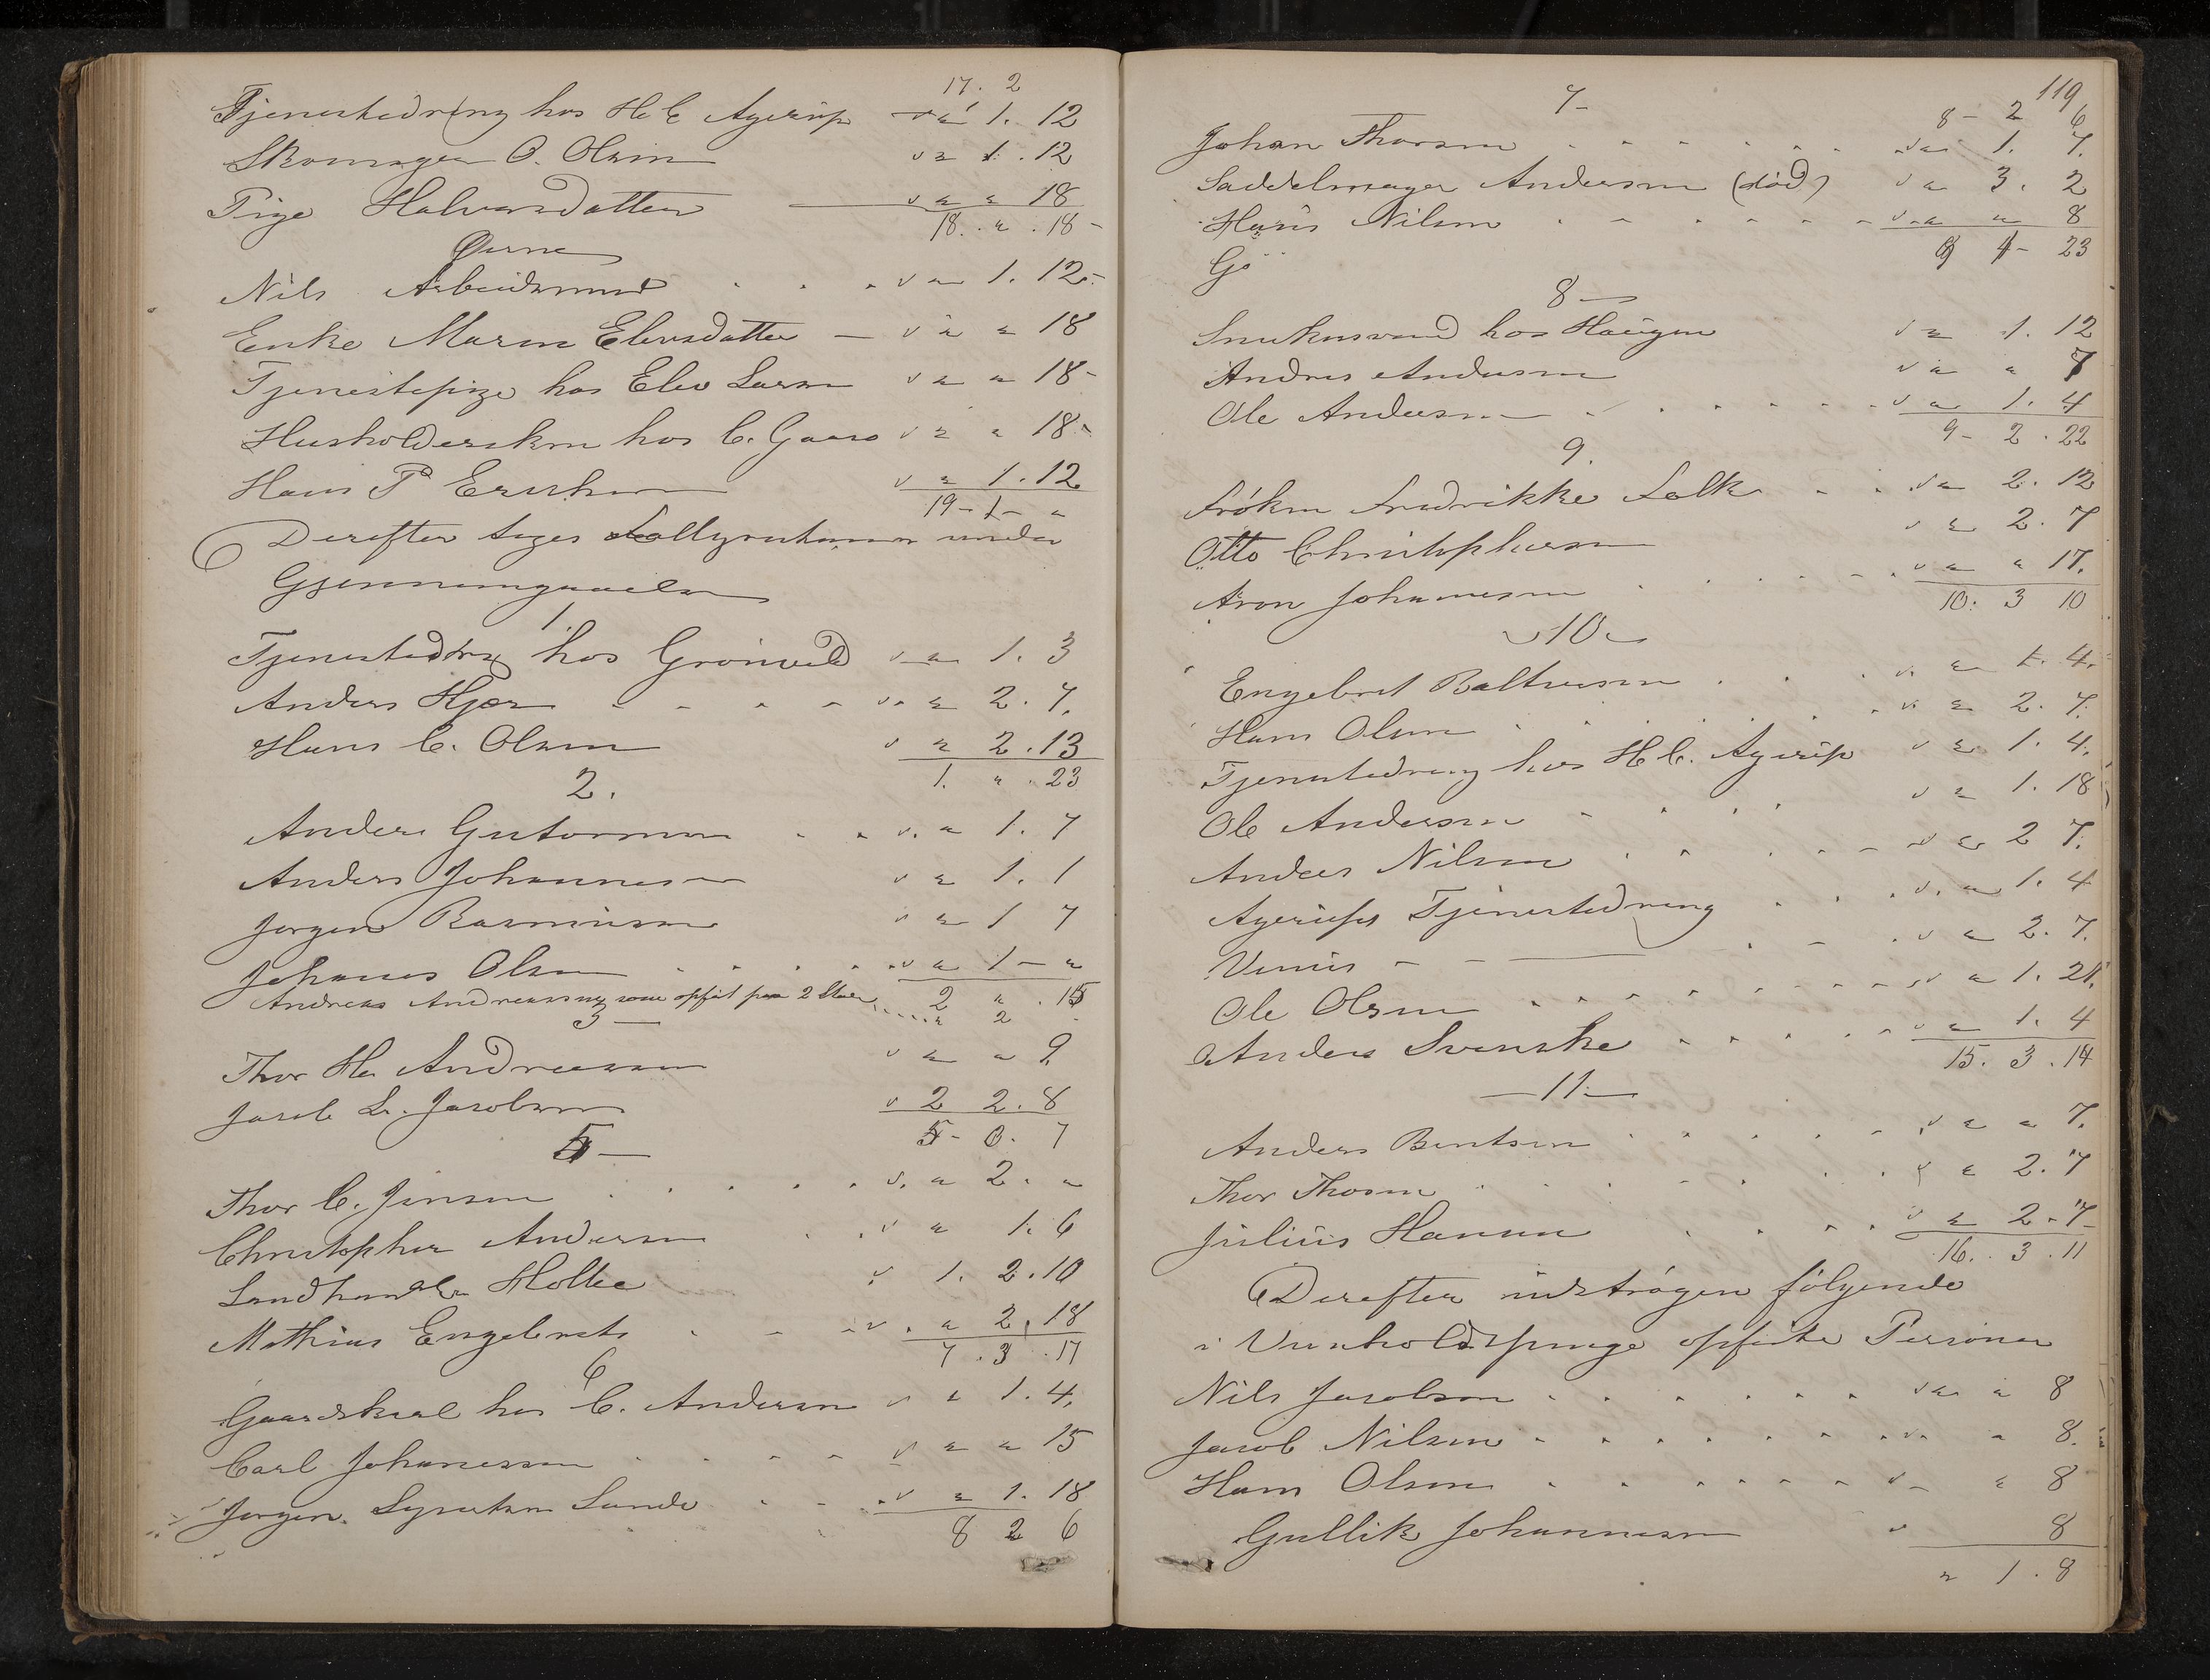 17. 2
Tjenestedreng hos H. C. Agerup " 1. 12
Skomager O. Olsen " 1. 12
Pige Halvorsdatter " " 18
18. " . 18
Ørene
Nils Arbeidsmand " 1. 12.
Enke Maren Elevsdatter " " 18
Tjenestepige hos Elev Larsen " " 18
Husholdersken hos C. Gaarø " " 18
Hans P Eriksen " 1. 12
19 - 1 - "
Derefter toges under
Gjennemgaaelse
1.
Tjenestedreng hos Grønvold " 1. 3
Anders Hjær " 2. 7.
Hans C. Olsen " 2. 13
1. " . 23
2.
Anders Guttormsen " 1. 7
Anders Johannesen " 1. 1
Jørgen Rasmussen " 1 7
Johannes Olsen " 1 - "
Andreas Andreassen som opført paa 2 " 2
2 " . 15
3 -
Thor H. Andreassen " " 9
Jacob L. Jacobsen 2 2. 8
5 - 0. 7
5 -
Thor C. Jensen " 2. "
Christopher Andersen " 1. 6
Landhandler Holte 1. 2. 10
Mathias Engebrets " 2. 18
7. 3. 17
6
Gaardskarl hos C. Andersen " 1. 4.
Carl Johannessen " " 15
Jørgen Lunde " 1. 18
8 2 6
119
7 -
8 - 2 6
Johan Thorsen " 1. 7.
Saddelmager Andersen (død) " 3. 2
Hans Nilsen " " 8
9 1 - 23
8 -
hos Haugen " 1. 12
Andres Andersen " " 7
Ole Andersen " 1. 4
9 - 2. 22
9.
Frøken Fredrikke Falk " 2. 12
Otto Christophersen " 2. 7
Aron Johannesen " " 17.
10. 3 10
- 10 -
Engebret Baltersen " 1. 4.
Hans Olsen " 2. 7.
Tjenestedreng hos H. C. Agerup " 1. 4.
Ole Andersen " 1. 18
Anders Nilsen " 2 7.
Agerups Tjenestedreng " 1. 4
" 2. 7.
Ole Olsen " 1. 21.
Anders Svenske " 1. 4
15. 3. 14
- 11 -
Anders Bentsen " " 7.
Thor Thorsen " 2. 7
Julius Hansen " 2. 7
16. 3. 11
Derefter udstrøgen følgende
i opførte Personer
Nils Jacobsen " " 8
Jacob Nilsen " 8.
Hans Olsen " 8
Gullik Johannesen 8
" 1. 8